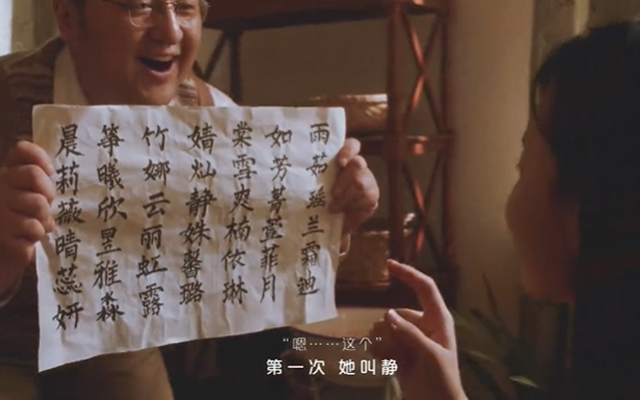 雨茹瑶兰霜迪
如芳菁萱菲月
棠雪爽楠依琳
婧灿静姝馨璐
竹娜云丽虹露
筝曦欣昱雅淼
晨莉薇晴蕊妍
“嗯……这个”
第一次 她叫静